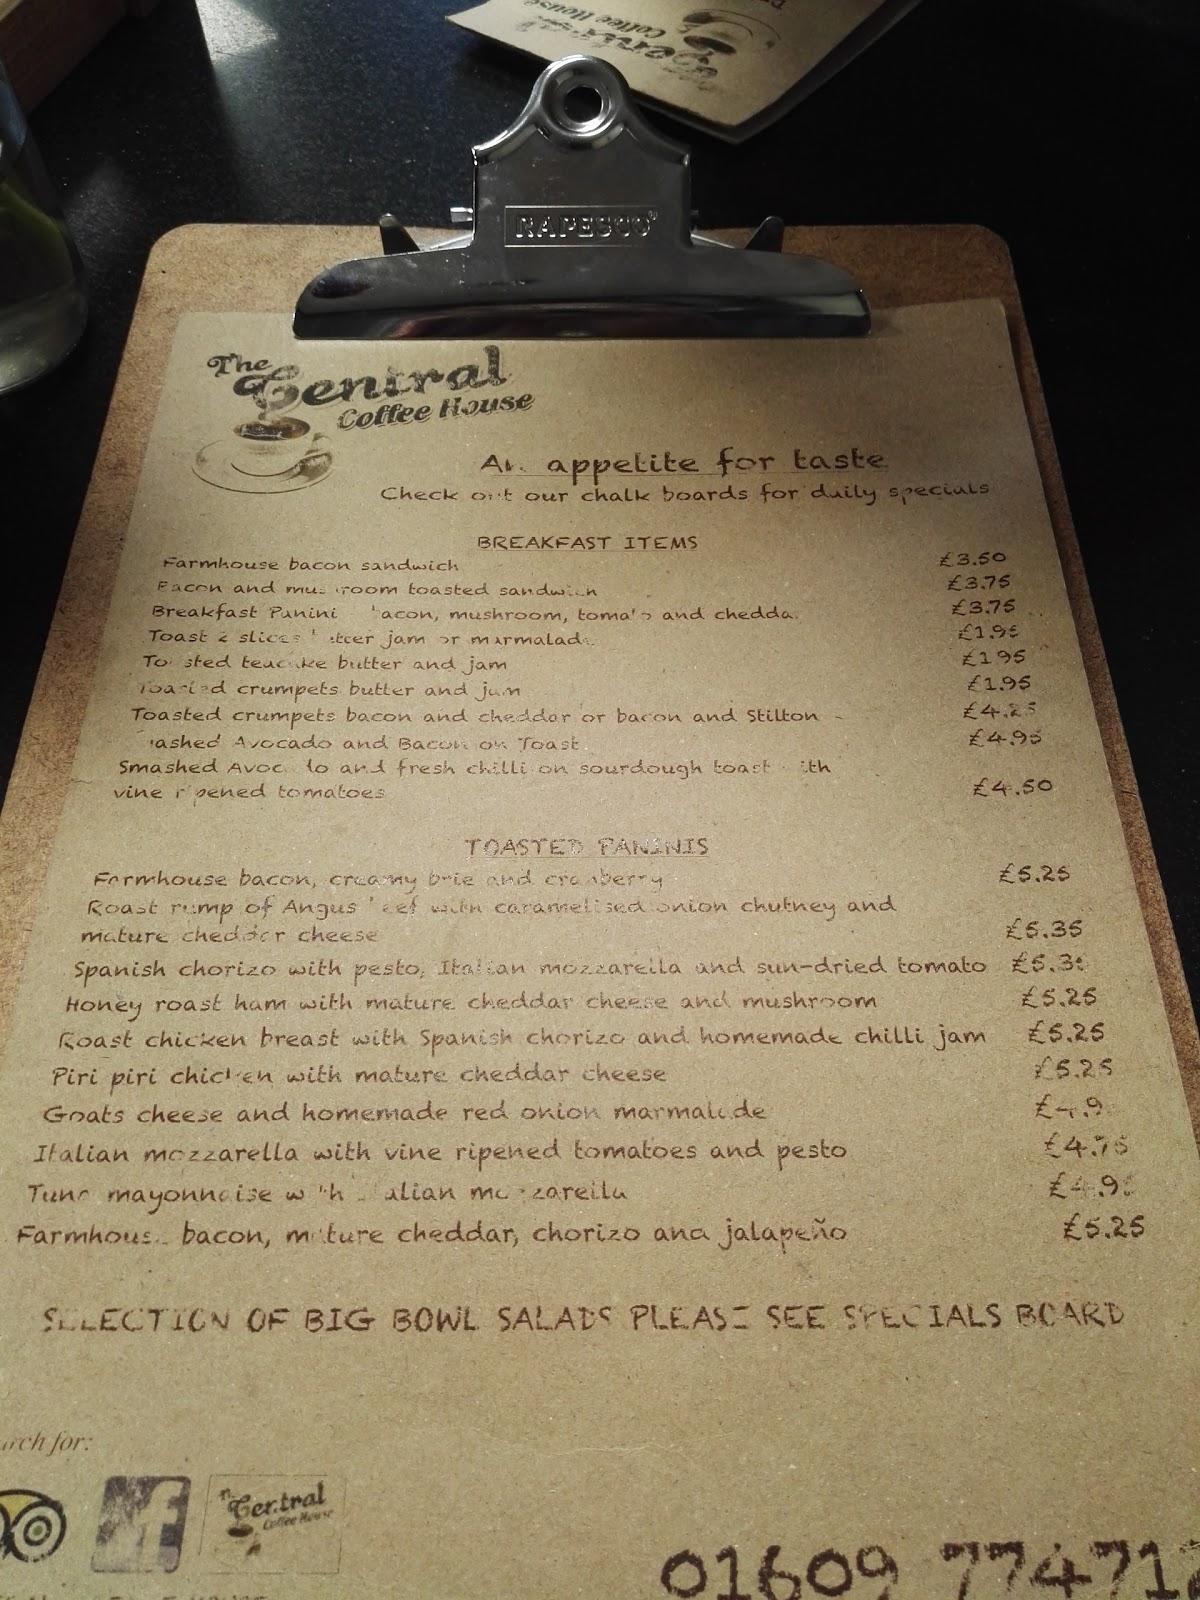 RAPESCO
The Central
Coffee House
An appetite for taste
Check out our chalk boards for daily specials
BREAKFAST ITEMS
Farmhouse bacon sandwich £3.50
Bacon and mushroom toasted sandwich £3.75
Breakfast Panini bacon, mushroom, tomato and cheddar £3.75
Toast 2 slices butter jam or marmalade £1.95
Toasted teacake butter and jam £1.95
Toasted crumpets butter and jam £1.95
Toasted crumpets bacon and cheddar or bacon and Stilton £4.25
Smashed Avocado and Bacon on Toast £4.95
Smashed Avocado and fresh chilli on sourdough toast with
vine ripened tomatoes £4.50
TOASTED PANINIS
Farmhouse bacon, creamy brie and cranberry £5.25
Roast rump of Angus beef with caramelised onion chutney and
mature cheddar cheese £5.35
Spanish chorizo with pesto, Italian mozzarella and sun-dried tomato
Honey roast ham with mature cheddar cheese and mushroom £5.25
Roast chicken breast with Spanish chorizo and homemade chilli jam £5.25
Piri piri chicken with mature cheddar cheese £5.25
Goats cheese and homemade red onion marmalade
Italian mozzarella with vine ripened tomatoes and pesto
Tuna mayonnaise with Italian mozzarella
Farmhouse bacon, mature cheddar, chorizo and jalapeño £5.25
SELECTION OF BIG BOWL SALADS PLEASE SEE SPECIALS BOARD
for:
Central
Coffee House
01609